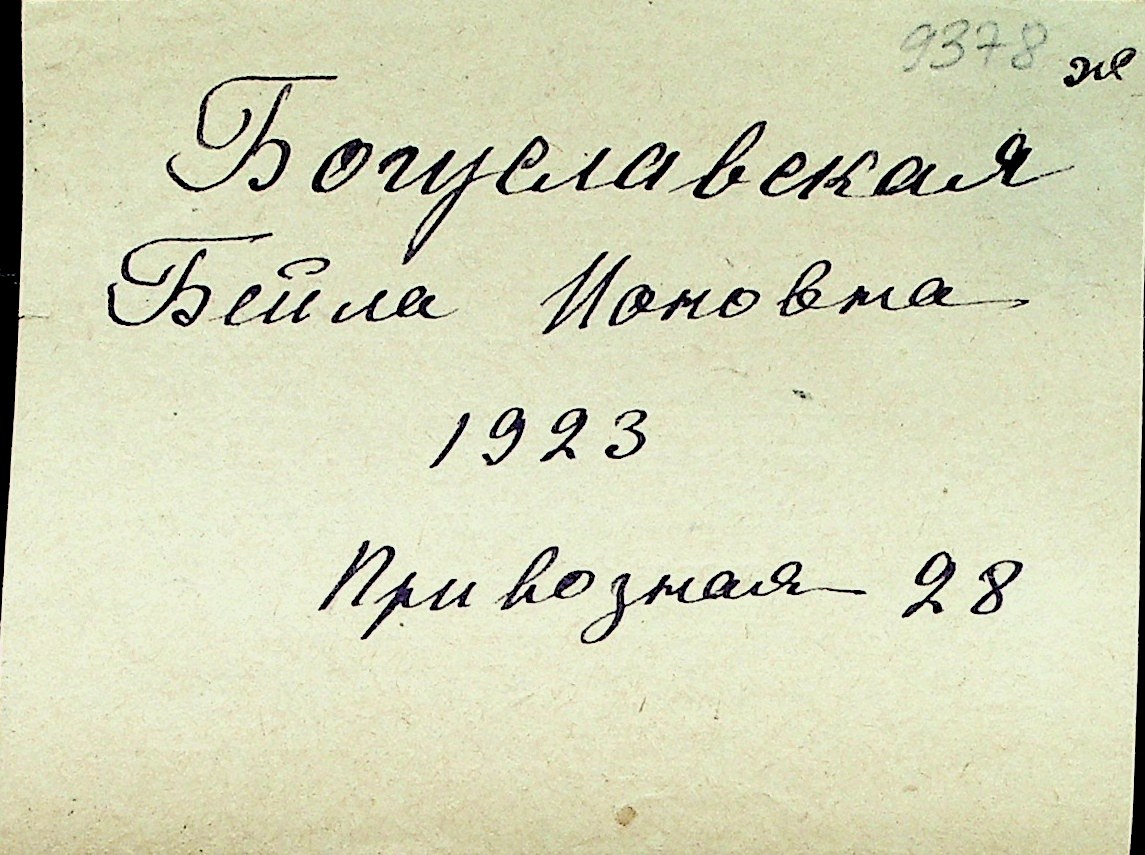 9378 ж
Богуславская
Бейла Ионовна
1923
Привозная 28